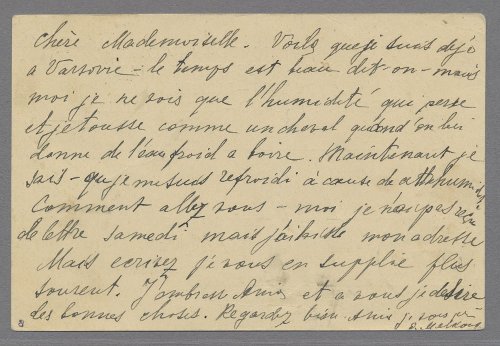 Chère Mademoiselle. Voila que je suis déjà
a Varsovie - le temps est beau dit-on - mais
moi je ne vois que l'humidité qui perse
et je tousse comme un cheval quand on lui
donne de l'eau froid a boire. Maintenant je
sais - que je me suis refroidi à cause de cette humidité
Comment allez vous - moi je n'ai pas reçu
de lettre samedi mais j'ai laissé mon adresse
Mais ecrivez je vous en supplie plus
souvent. J'embrasse Ania et a vous je desire
des bonnes choses. Regardez bien Ania je vous